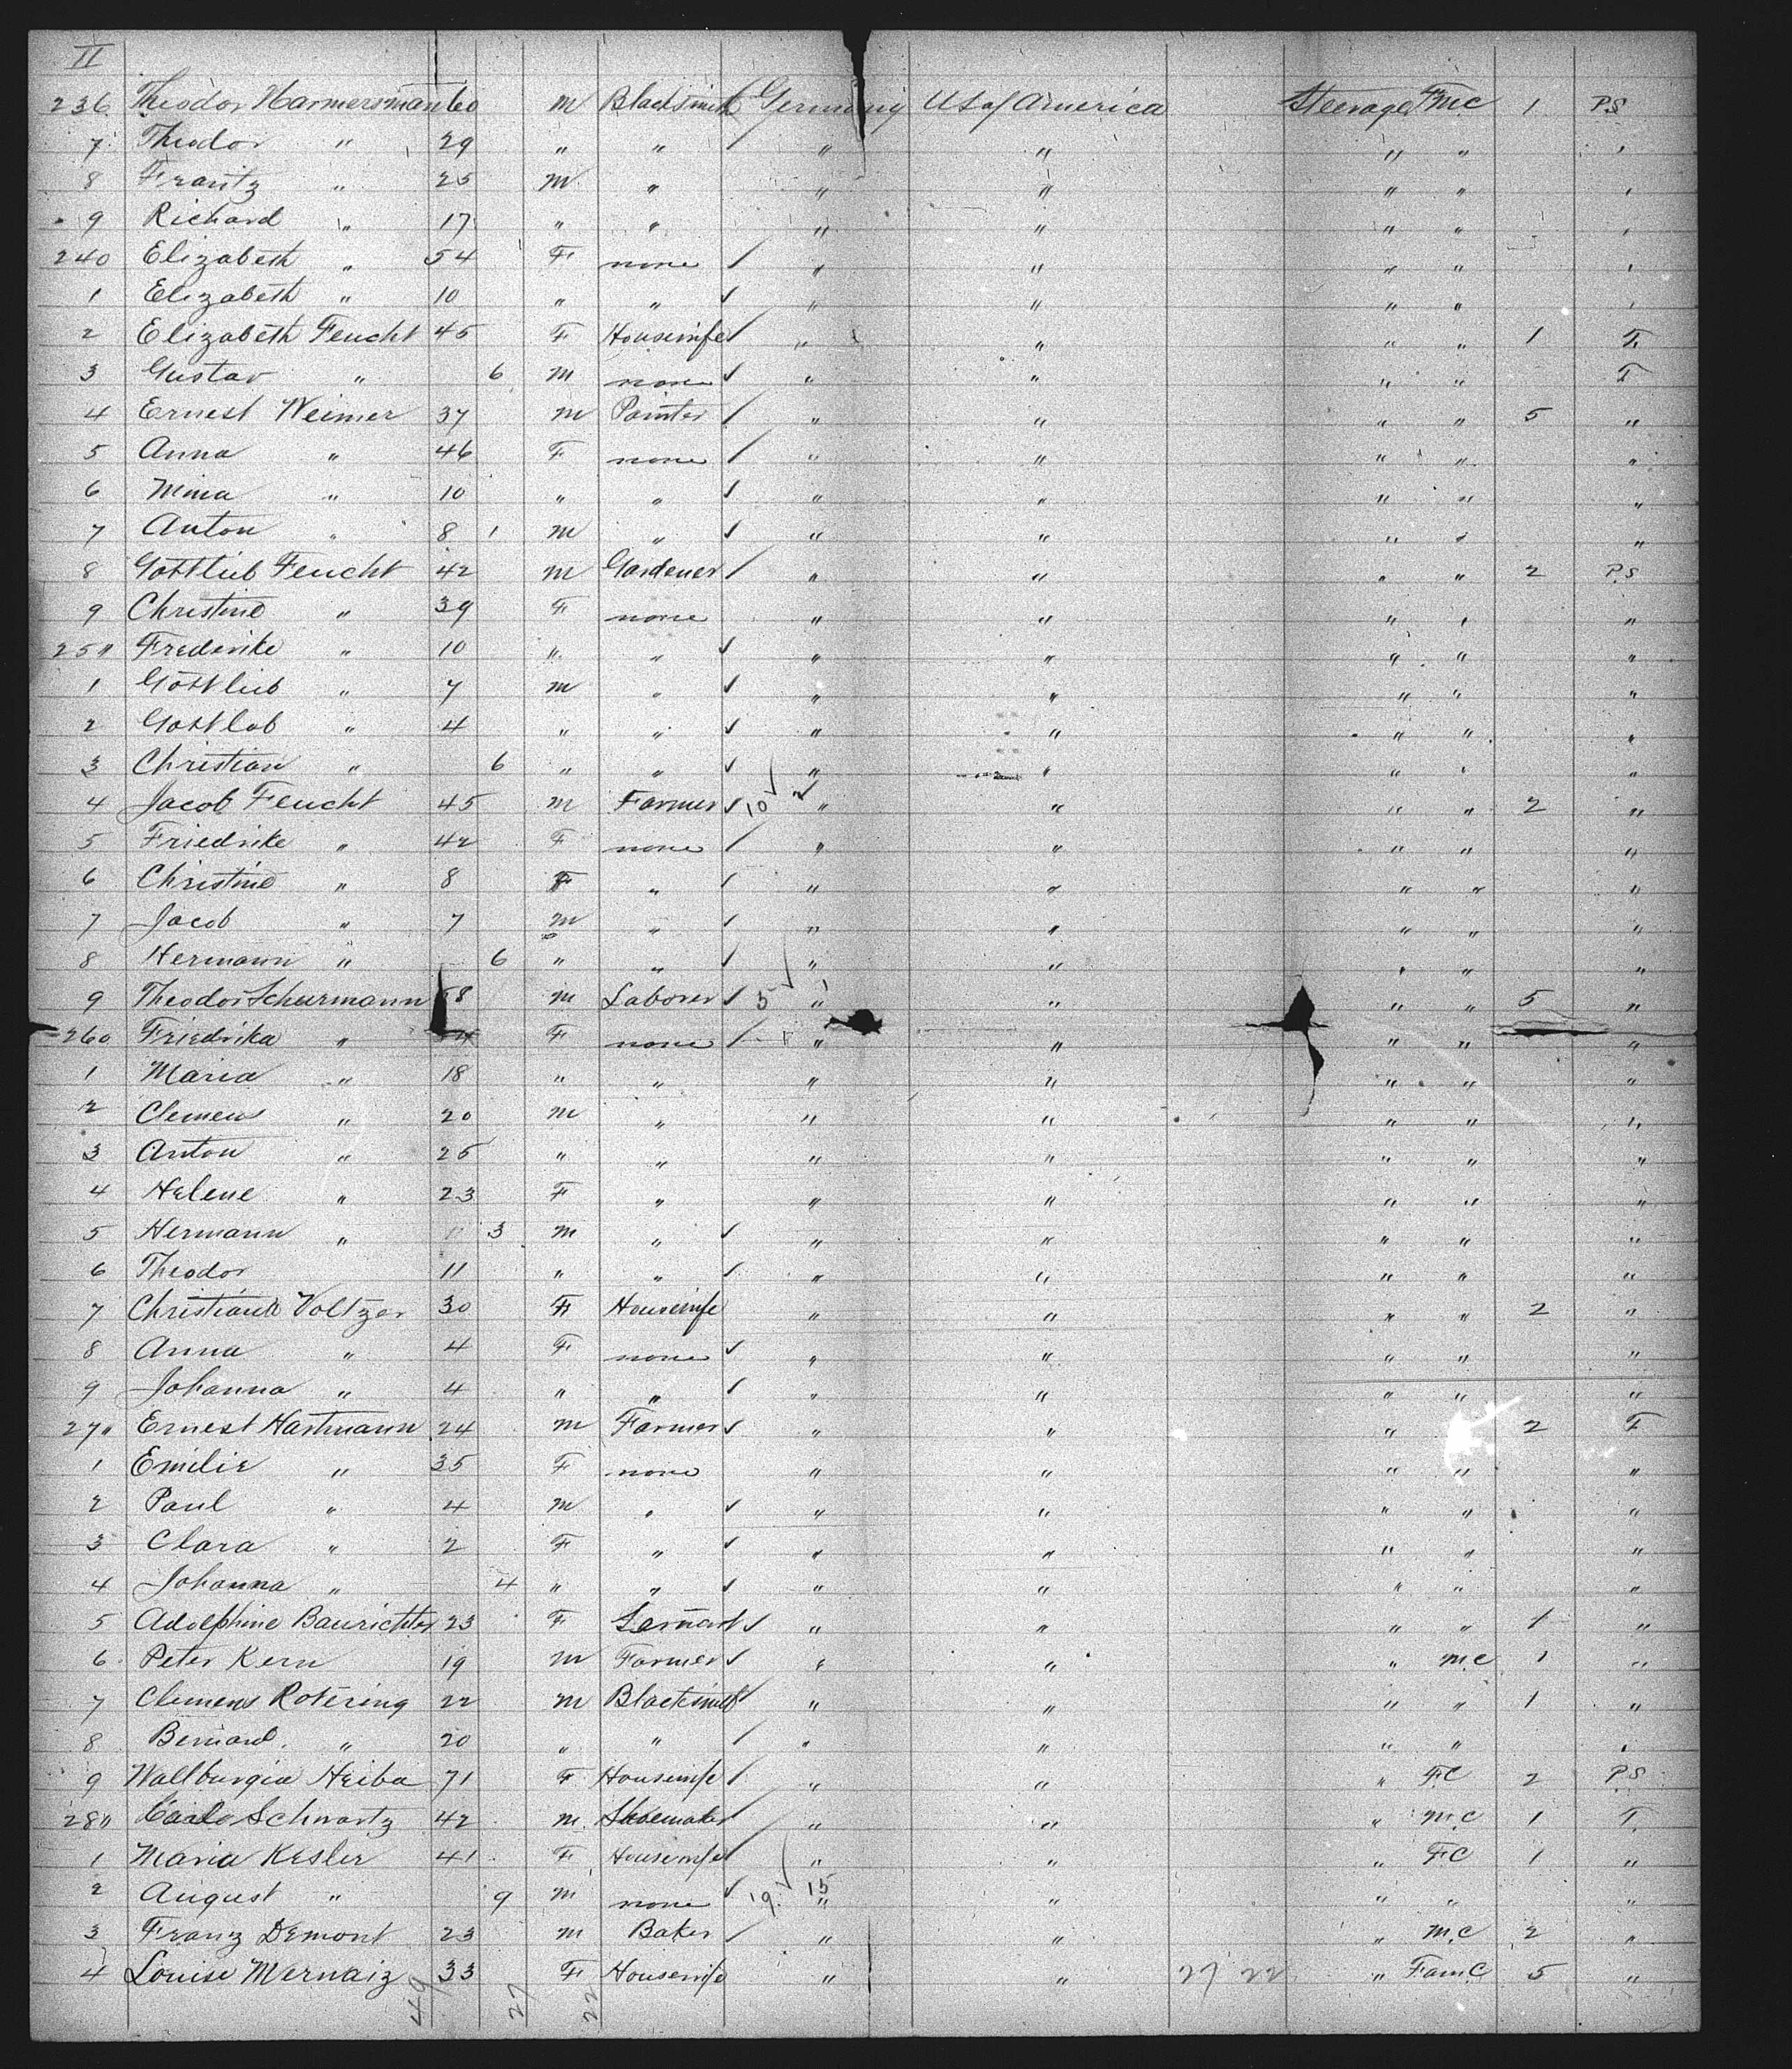 II
236 Theodor Harmersmann 60 m Blacksmith Germany US of America Steerage FmC 1 P.S
7 Theodor " 29 " " " " " " "
8 Frantz " 25 m " " " " " "
9 Richard " 17 " " " " " " "
240 Elizabeth " 54 F none " " " " "
1 Elizabeth " 10 " " " " " " "
2 Elizabeth Feucht 45 F Housewife " " " " 1 T.
3 Gustav " 6 m none " " " " T
4 Ernest Weimer 37 m Painter " " " " 5 "
5 Anna " 46 F none " " " " "
6 Mina " 10 " " " " " " "
7 Anton " 8 1 m " " " " " "
8 Gottlieb Feucht 42 m Gardener " " " " 2 P.S
9 Christine " 39 F none " " " " "
25" Frederike " 10 " " " " " " "
1 Gottlieb " 7 m " " " " " "
2 Gottlob " 4 " " " " " " "
3 Christian " 6 " " " " " " "
4 Jacob Feucht 45 m Farmer 10 " " " " 2 "
5 Friedrike " 42 F none " " " " "
6 Christine " 8 F " " " " " "
7 Jacob " 7 m " " " " " "
8 Hermann " 6 " " " " " " "
9 Theodor Schurmann 58 m Laborer 5 " " " " 5 "
260 Friedrika " F none " " " " "
1 Maria " 18 " " " " " " "
2 Clemens " 20 m " " " " " "
3 Anton " 25 " " " " " " "
4 Helene " 23 F " " " " " "
5 Hermann " 3 m " " " " " "
6 Theodor 11 " " " " " " "
7 Christiane Voltzer 30 F Housewife " " " " 2 "
8 Anna " 4 F none " " " " "
9 Johanna " 4 " " " " " " "
27" Ernest Hartmann 24 m Farmer " " " 2 F
1 Emilie " 35 F none " " " " "
2 Paul " 4 m " " " " " "
3 Clara " 2 F " " " " " "
4 Johanna " 4 " " " " " " "
5 Adolphine Baurichter 23 F Servant " " " " 1 "
6 Peter Kern 19 m Farmer " " " m.C 1 "
7 Clemens Rotering 22 m Blacksmith " " " " 1 "
8 Bernard " 20 " " " " " " "
9 Wallburgia Heiba 71 F Housewife " " " FC 2 P.S
28" Schwartz 42 m. Shoemaker " " " m.C 1 T.
1 Maria Kesler 41 F Housewife " " " FC 1 "
2 August " 9 m none 19. 15 " " " " "
3 Franz Demont 23 m Baker " " " m.C 2 "
4 Louise Mernaiz 33 F Housewife " " 27 22 " Fam.C 5 "
49 27 22